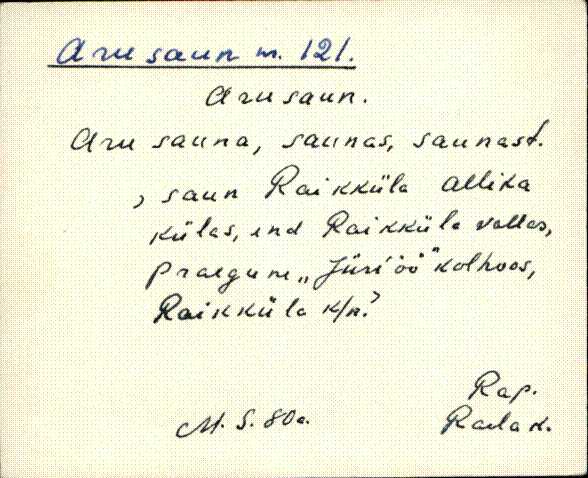 Aru saun m. 121.
Aru saun.
Aru sauna, saunas, saunast.
, saun Raikküla Allika
külas, end Raikküla vallas,
praegune „Jüriöö" kolhoos,
Raikküla k/n.'
Rap.
M. S. 80a. Raela k.